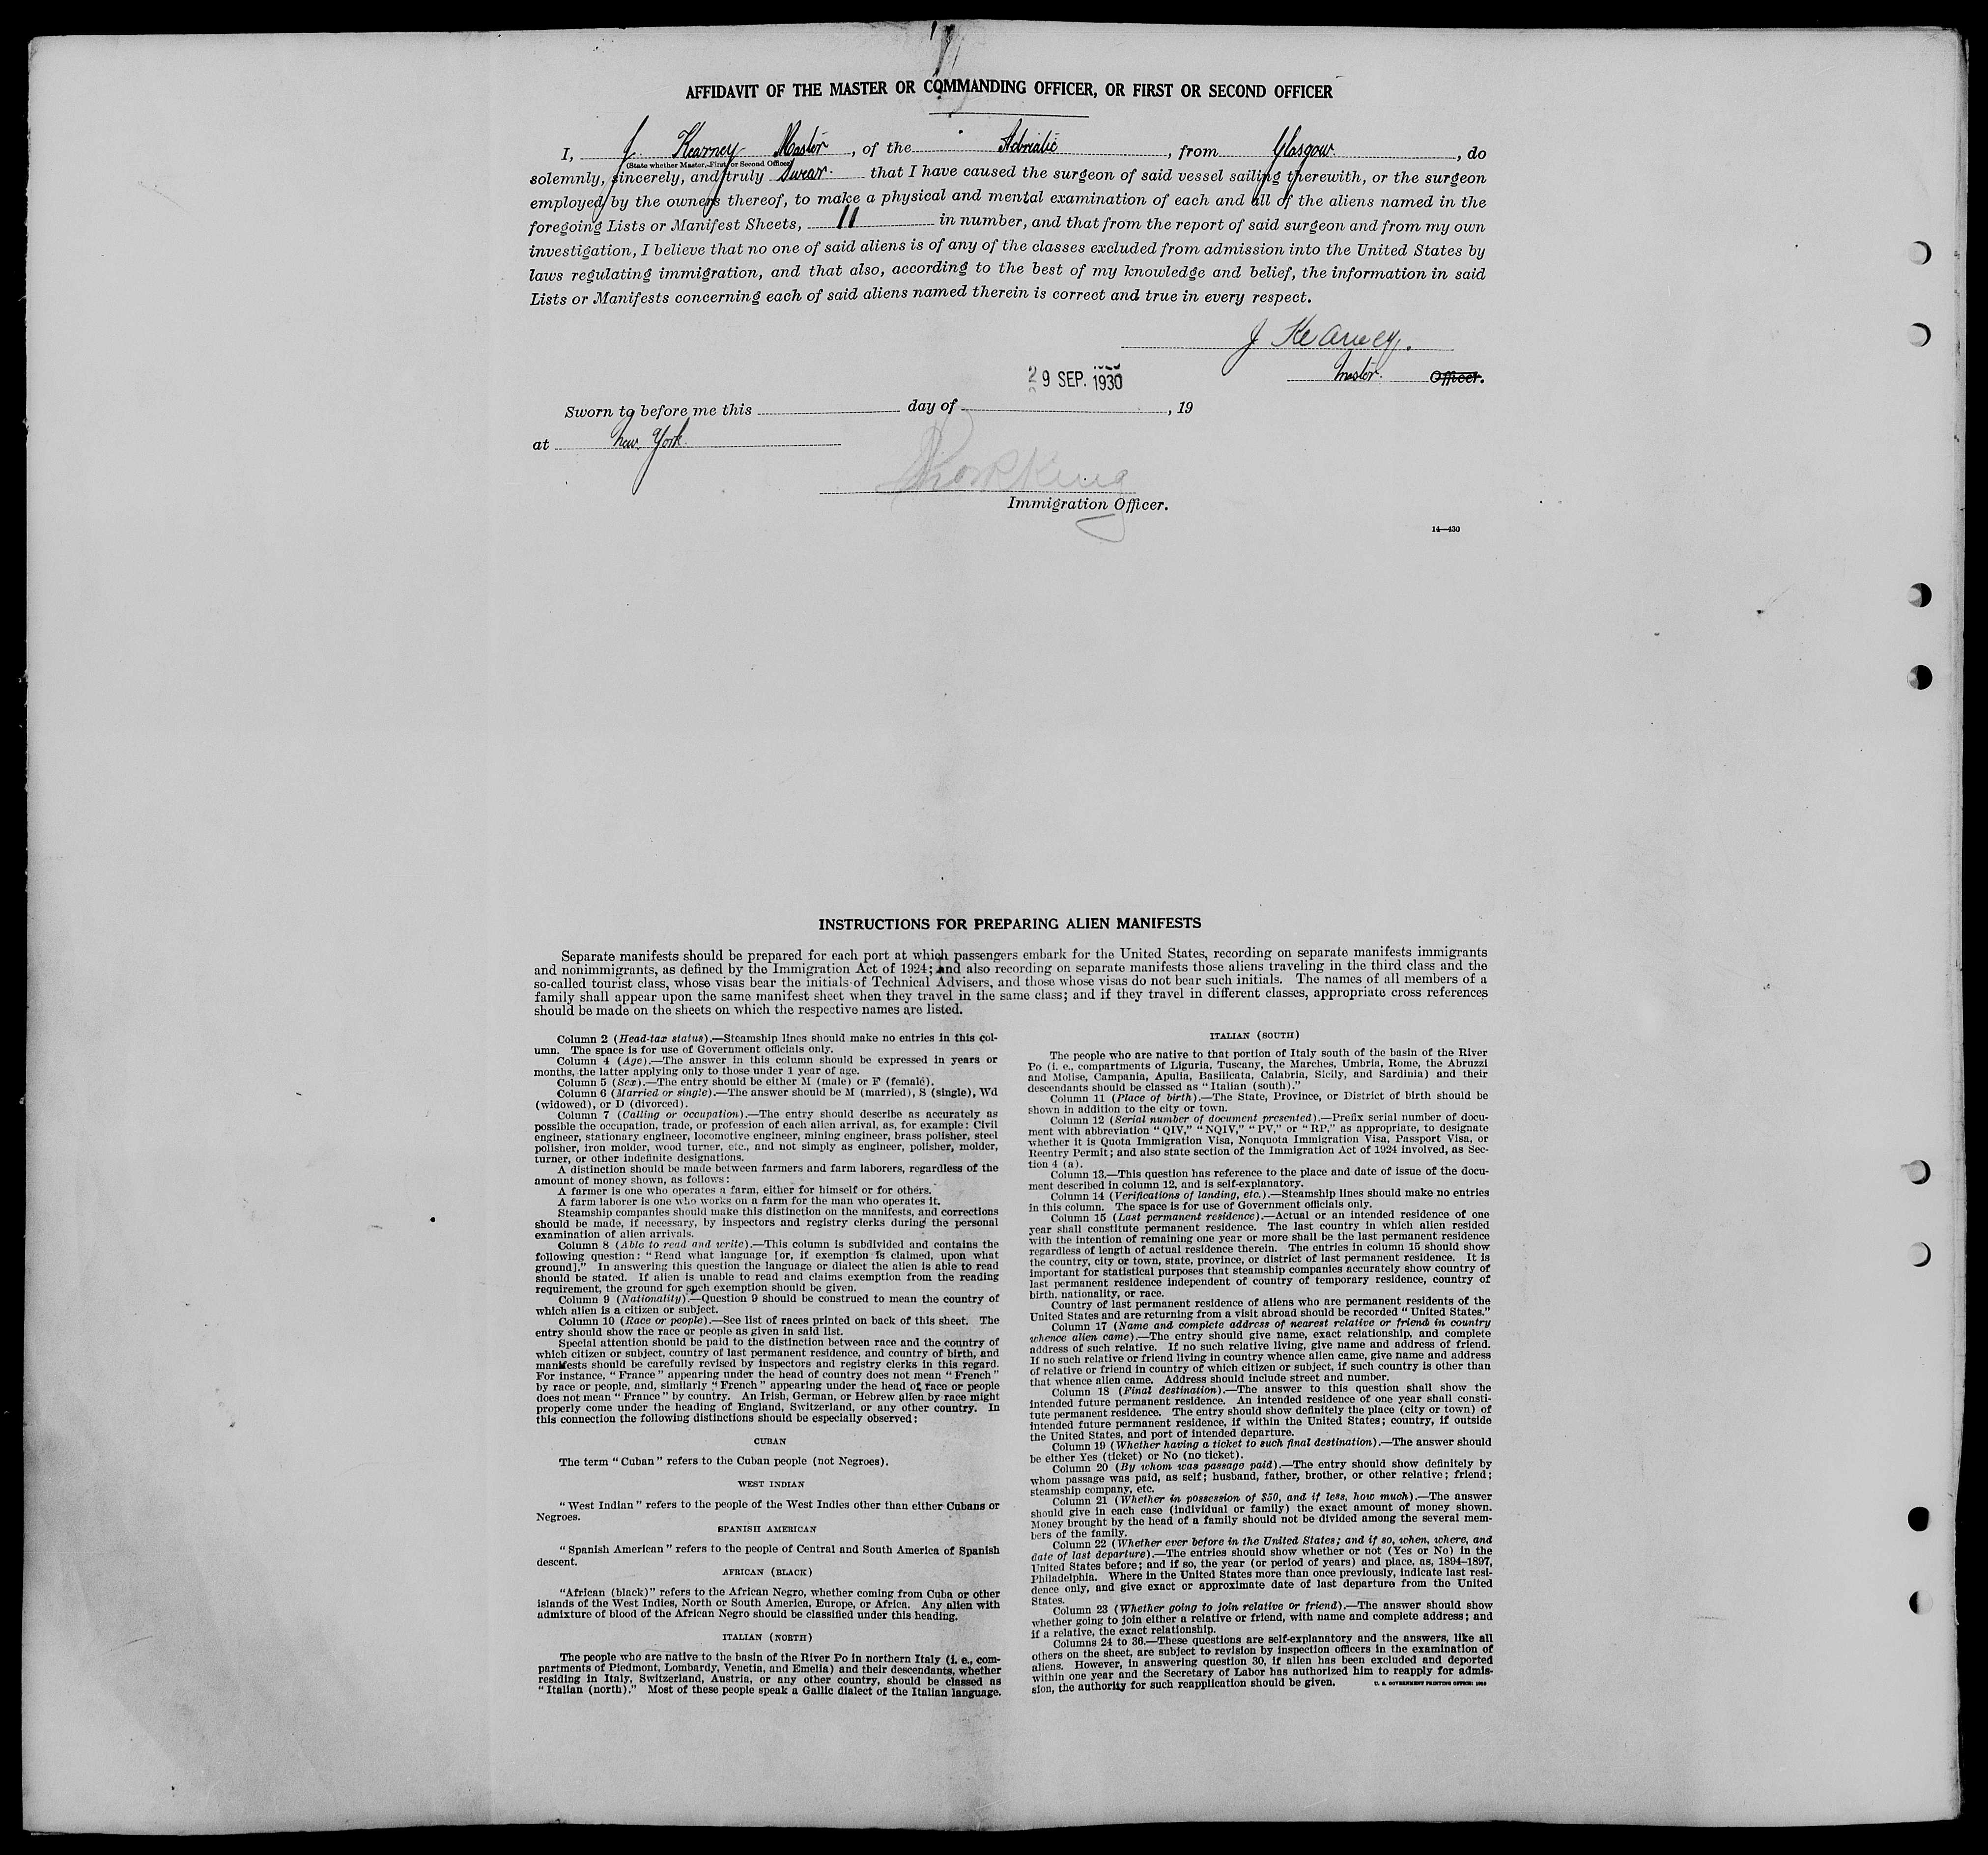 AFFIDAVIT OF THE MASTER OR COMMANDING OFFICER, OR FIRST OR SECOND OFFICER
I, J Kearney Master, of the Adriatic, from Glasgow, do
(State whether Master, First, or Second Officer)
solemnly, sincerely, and truly Swear. that I have caused the surgeon of said vessel sailing therewith, or the surgeon
employed by the owners thereof, to make a physical and mental examination of each and all of the aliens named in the
foregoing Lists or Manifest Sheets, 11 in number, and that from the report of said surgeon and from my own
investigation, I believe that no one of said aliens is of any of the classes excluded from admission into the United States by
laws regulating immigration, and that also, according to the best of my knowledge and belief, the information in said
Lists or Manifests concerning each of said aliens named therein is correct and true in every respect.
J Kearney.
Master. Officer.
29 SEP. 1930
Sworn to before me this day of , 19
at New York.
Immigration Officer.
14—430
INSTRUCTIONS FOR PREPARING ALIEN MANIFESTS
Separate manifests should be prepared for each port at which passengers embark for the United States, recording on separate manifests immigrants
and nonimmigrants, as defined by the Immigration Act of 1924; and also recording on separate manifests those aliens traveling in the third class and the
so-called tourist class, whose visas bear the initials of Technical Advisers, and those whose visas do not bear such initials. The names of all members of a
family shall appear upon the same manifest sheet when they travel in the same class; and if they travel in different classes, appropriate cross references
should be made on the sheets on which the respective names are listed.
Column 2 (Head-tax status).—Steamship lines should make no entries in this col-
umn. The space is for use of Government officials only.
Column 4 (Age).—The answer in this column should be expressed in years or
months, the latter applying only to those under 1 year of age.
Column 5 (Sex).—The entry should be either M (male) or F (female).
Column 6 (Married or single).—The answer should be M (married), S (single), Wd
(widowed), or D (divorced).
Column 7 (Calling or occupation).—The entry should describe as accurately as
possible the occupation, trade, or profession of each alien arrival, as, for example: Civil
engineer, stationary engineer, locomotive engineer, mining engineer, brass polisher, steel
polisher, iron molder, wood turner, etc., and not simply as engineer, polisher, molder,
turner, or other indefinite designations.
A distinction should be made between farmers and farm laborers, regardless of the
amount of money shown, as follows:
A farmer is one who operates a farm, either for himself or for others.
A farm laborer is one who works on a farm for the man who operates it.
Steamship companies should make this distinction on the manifests, and corrections
should be made, if necessary, by inspectors and registry clerks during the personal
examination of alien arrivals.
Column 8 (Able to read and write).—This column is subdivided and contains the
following question: "Read what language [or, if exemption is claimed, upon what
ground]." In answering this question the language or dialect the alien is able to read
should be stated. If alien is unable to read and claims exemption from the reading
requirement, the ground for such exemption should be given.
Column 9 (Nationality).—Question 9 should be construed to mean the country of
which alien is a citizen or subject.
Column 10 (Race or people).—See list of races printed on back of this sheet. The
entry should show the race or people as given in said list.
Special attention should be paid to the distinction between race and the country of
which citizen or subject, country of last permanent residence, and country of birth, and
manifests should be carefully revised by inspectors and registry clerks in this regard.
For instance, "France" appearing under the head of country does not mean "French"
by race or people, and, similarly "French" appearing under the head of race or people
does not mean "France" by country. An Irish, German, or Hebrew alien by race might
properly come under the heading of England, Switzerland, or any other country. In
this connection the following distinctions should be especially observed:
CUBAN
The term "Cuban" refers to the Cuban people (not Negroes).
WEST INDIAN
"West Indian" refers to the people of the West Indies other than either Cubans or
Negroes.
SPANISH AMERICAN
"Spanish American" refers to the people of Central and South America of Spanish
descent.
AFRICAN (BLACK)
"African (black)" refers to the African Negro, whether coming from Cuba or other
islands of the West Indies, North or South America, Europe, or Africa. Any alien with
admixture of blood of the African Negro should be classified under this heading.
ITALIAN (NORTH)
The people who are native to the basin of the River Po in northern Italy (i. e., com-
partments of Piedmont, Lombardy, Venetia, and Emelia) and their descendants, whether
residing in Italy, Switzerland, Austria, or any other country, should be classed as
"Italian (north)." Most of these people speak a Gallic dialect of the Italian language.
ITALIAN (SOUTH)
The people who are native to that portion of Italy south of the basin of the River
Po (i. e., compartments of Liguria, Tuscany, the Marches, Umbria, Rome, the Abruzzi
and Molise, Campania, Apulia, Basilicata, Calabria, Sicily, and Sardinia) and their
descendants should be classed as "Italian (south)."
Column 11 (Place of birth).—The State, Province, or District of birth should be
shown in addition to the city or town.
Column 12 (Serial number of document presented).—Prefix serial number of docu-
ment with abbreviation "QIV," "NQIV," "PV," or "RP," as appropriate, to designate
whether it is Quota Immigration Visa, Nonquota Immigration Visa, Passport Visa, or
Reentry Permit; and also state section of the Immigration Act of 1924 involved, as Sec-
tion 4 (a).
Column 13.—This question has reference to the place and date of issue of the docu-
ment described in column 12, and is self-explanatory.
Column 14 (Verifications of landing, etc.).—Steamship lines should make no entries
in this column. The space is for use of Government officials only.
Column 15 (Last permanent residence).—Actual or an intended residence of one
year shall constitute permanent residence. The last country in which alien resided
with the intention of remaining one year or more shall be the last permanent residence
regardless of length of actual residence therein. The entries in column 15 should show
the country, city or town, state, province, or district of last permanent residence. It is
important for statistical purposes that steamship companies accurately show country of
last permanent residence independent of country of temporary residence, country of
birth, nationality, or race.
Country of last permanent residence of aliens who are permanent residents of the
United States and are returning from a visit abroad should be recorded "United States."
Column 17 (Name and complete address of nearest relative or friend in country
whence alien came).—The entry should give name, exact relationship, and complete
address of such relative. If no such relative living, give name and address of friend.
If no such relative or friend living in country whence alien came, give name and address
of relative or friend in country of which citizen or subject, if such country is other than
that whence alien came. Address should include street and number.
Column 18 (Final destination).—The answer to this question shall show the
intended future permanent residence. An intended residence of one year shall consti-
tute permanent residence. The entry should show definitely the place (city or town) of
intended future permanent residence, if within the United States; country, if outside
the United States, and port of intended departure.
Column 19 (Whether having a ticket to such final destination).—The answer should
be either Yes (ticket) or No (no ticket).
Column 20 (By whom was passage paid).—The entry should show definitely by
whom passage was paid, as self; husband, father, brother, or other relative; friend;
steamship company, etc.
Column 21 (Whether in possession of $50, and if less, how much).—The answer
should give in each case (individual or family) the exact amount of money shown.
Money brought by the head of a family should not be divided among the several mem-
bers of the family.
Column 22 (Whether ever before in the United States; and if so, when, where, and
date of last departure).—The entries should show whether or not (Yes or No) in the
United States before; and if so, the year (or period of years) and place, as, 1894–1897,
Philadelphia. Where in the United States more than once previously, indicate last resi-
dence only, and give exact or approximate date of last departure from the United
States.
Column 23 (Whether going to join relative or friend).—The answer should show
whether going to join either a relative or friend, with name and complete address; and
if a relative, the exact relationship.
Columns 24 to 36.—These questions are self-explanatory and the answers, like all
others on the sheet, are subject to revision by inspection officers in the examination of
aliens. However, in answering question 30, if alien has been excluded and deported
within one year and the Secretary of Labor has authorized him to reapply for admis-
sion, the authority for such reapplication should be given.
U. S. GOVERNMENT PRINTING OFFICE: